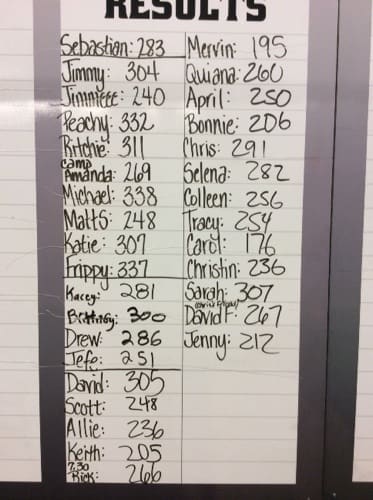 RESULTS
Sebastian: 283
Jimmy: 304
Jimmiee: 240
Peachy: 332
Ritchie: 311
Camp
Amanda: 269
Michael: 338
Matt S: 248
Katie: 307
Frippy: 337
Kacey: 281
Brittney: 300
Drew: 286
Jefe: 251
David: 305
Scott: 248
Allie: 236
Keith: 205
7:30
Rick: 266
Mervin: 195
Quiana: 260
April: 250
Bonnie: 206
Chris: 291
Selena: 282
Colleen: 256
Tracy: 254
Carol: 176
Christin: 236
Sarah: 307
David F: 267
Jenny: 212